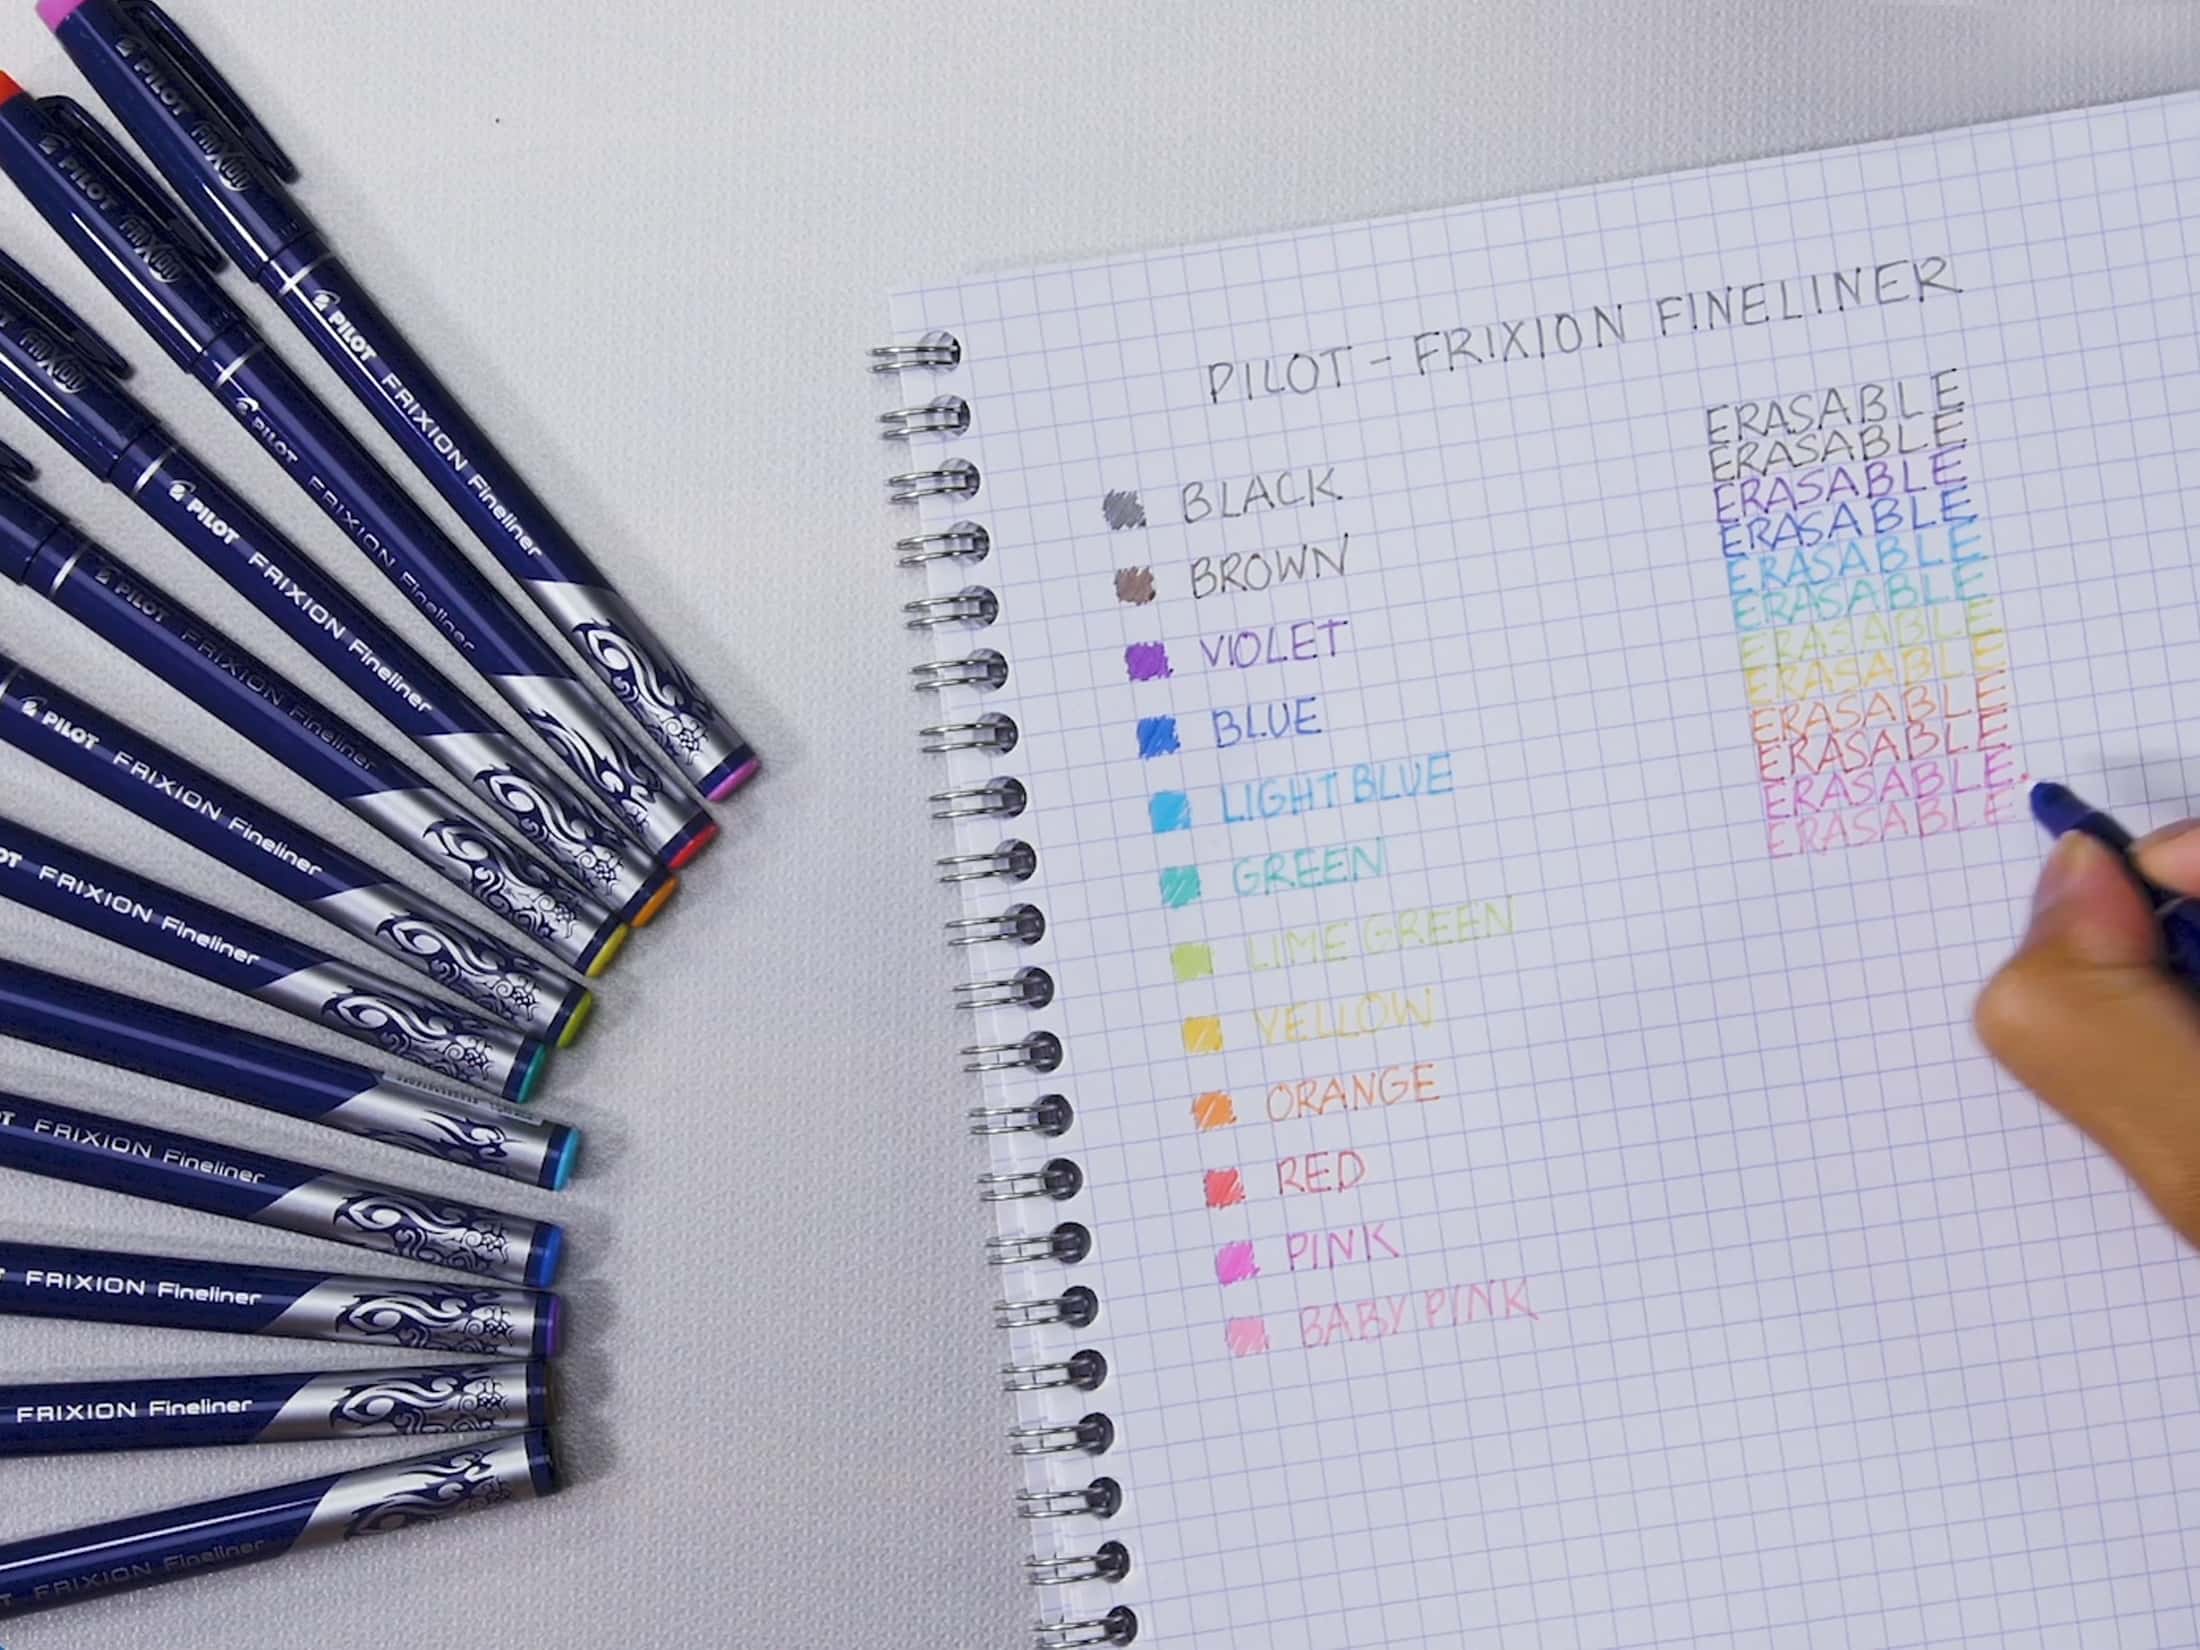 PILOT FRIXION
PILOT FRIXION Fineliner
PILOT FRIXION
PILOT FRIXION Fineliner
FRIXION
PILOT FRIXION Fineliner
PILOT FRIXION Fineliner
PILOT FRIXION Fineliner
OT FRIXION Fineliner
OT FRIXION Fineliner
T FRIXION Fineliner
FRIXION Fineliner
T FRIXION Fineliner
PILOT - FRIXION FINELINER
BLACK
BROWN
VIOLET
BLUE
LIGHT BLUE
GREEN
LIME GREEN
YELLOW
ORANGE
RED
PINK
BABY PINK
ERASABLE
ERASABLE
ERASABLE
ERASABLE
ERASABLE
ERASABLE
ERASABLE
ERASABLE
ERASABLE
ERASABLE
ERASABLE.
ERASABLE